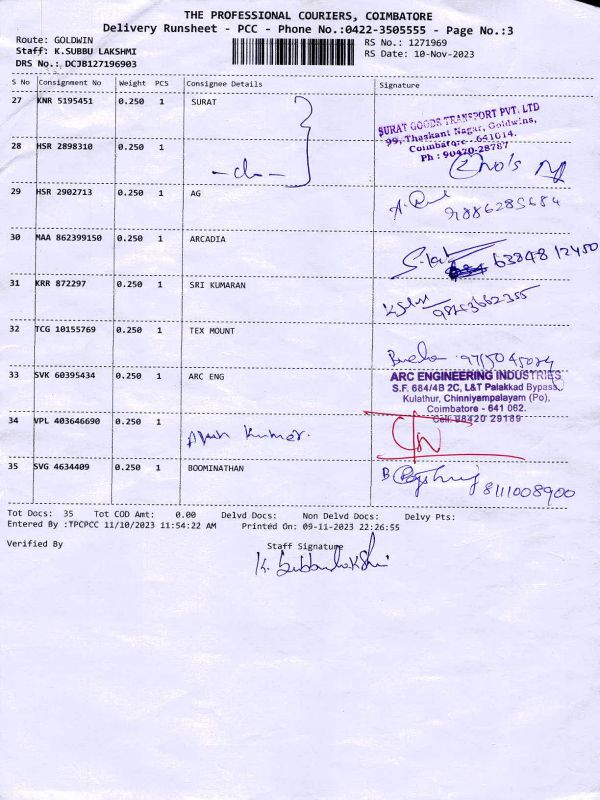 THE PROFESSIONAL COURIERS, COIMBATORE
Delivery Runsheet - PCC - Phone No.:0422-3505555 - Page No.:3
Route: GOLDWIN
Staff: K.SUBBU LAKSHMI
DRS No.: DCJB127196903
RS No.: 1271969
RS Date: 10-Nov-2023
S No Consignment No Weight PCS Consignee Details Signature
27 KNR 5195451 0.250 1 SURAT
SURAT GOODS TRANSPORT PVT. LTD
99, Thaskant Nagar, Goldwins,
Coimbatore - 641014.
Ph : 90470-28787
28 HSR 2898310 0.250 1
2 No's
29 HSR 2902713 0.250 1 AG
9886285684
30 MAA 862399150 0.250 1 ARCADIA
63848 12450
31 KRR 872297 0.250 1 SRI KUMARAN
32 TCG 10155769 0.250 1 TEX MOUNT
33 SVK 60395434 0.250 1 ARC ENG
ARC ENGINEERING INDUSTRIES
S.F. 684/4B 2C, L&T Palakkad Bypass,
Kulathur, Chinniyampalayam (Po),
Coimbatore - 641 062.
Cell: 98420 29189
34 VPL 403646690 0.250 1
Kumar.
35 SVG 4634409 0.250 1 BOOMINATHAN
8111008900
Tot Docs: 35 Tot COD Amt: 0.00 Delvd Docs: Non Delvd Docs: Delvy Pts:
Entered By :TPCPCC 11/10/2023 11:54:22 AM Printed On: 09-11-2023 22:26:55
Verified By Staff Signature
K. Subbulakshmi